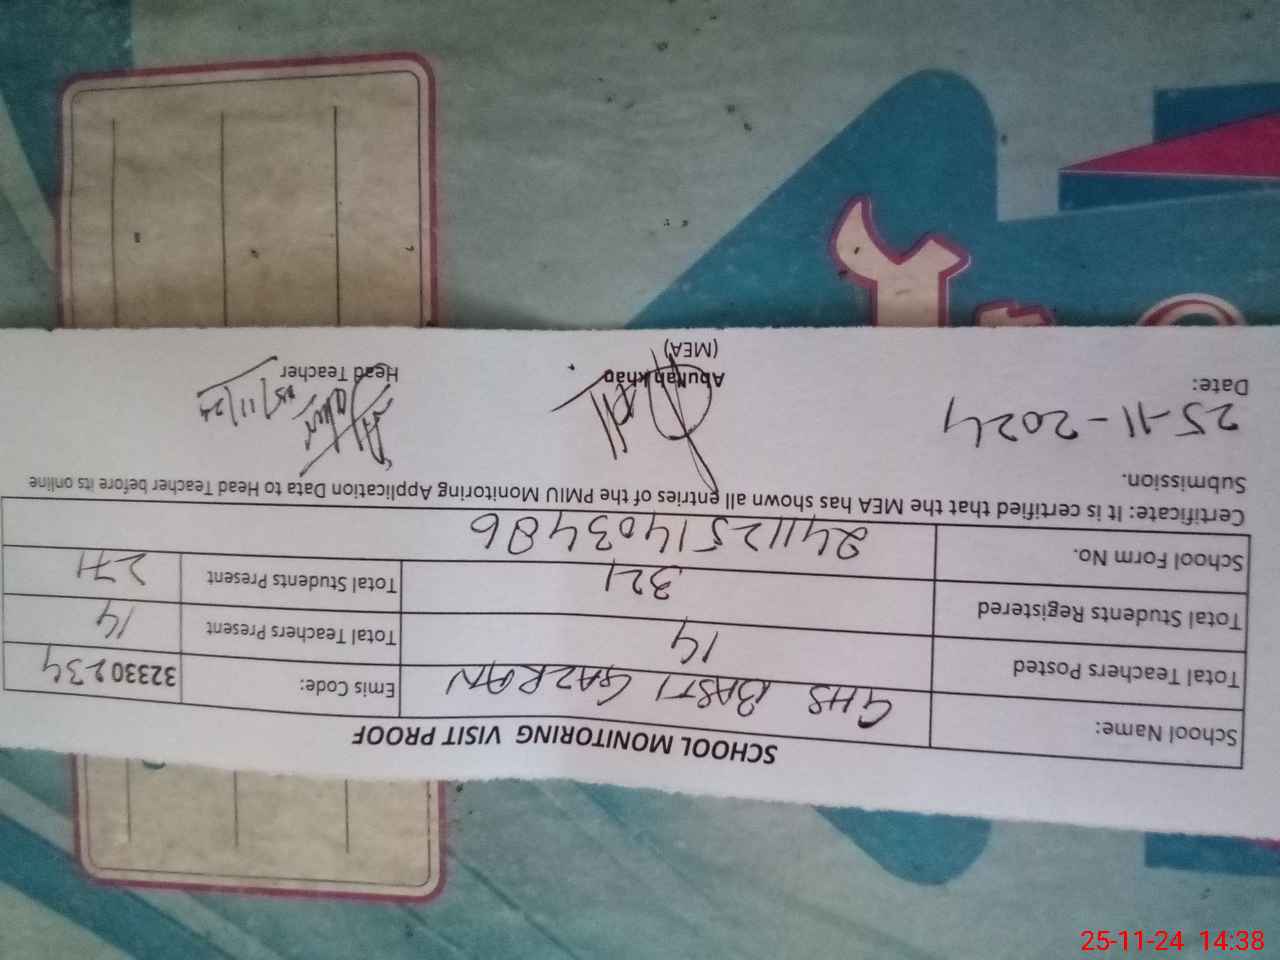 SCHOOL MONITORING VISIT PROOF
School Name: GHS BASTI GAZRAN Emis Code: 32330234
Total Teachers Posted 14 Total Teachers Present 14
Total Students Registered 321 Total Students Present 271
School Form No. 2411251403486
Certificate: It is certified that the MEA has shown all entries of the PMIU Monitoring Application Data to Head Teacher before its online
Submission.
25-11-2024 25/11/24
Date: Abullah khan Head Teacher
(MEA)
25-11-24 14:38